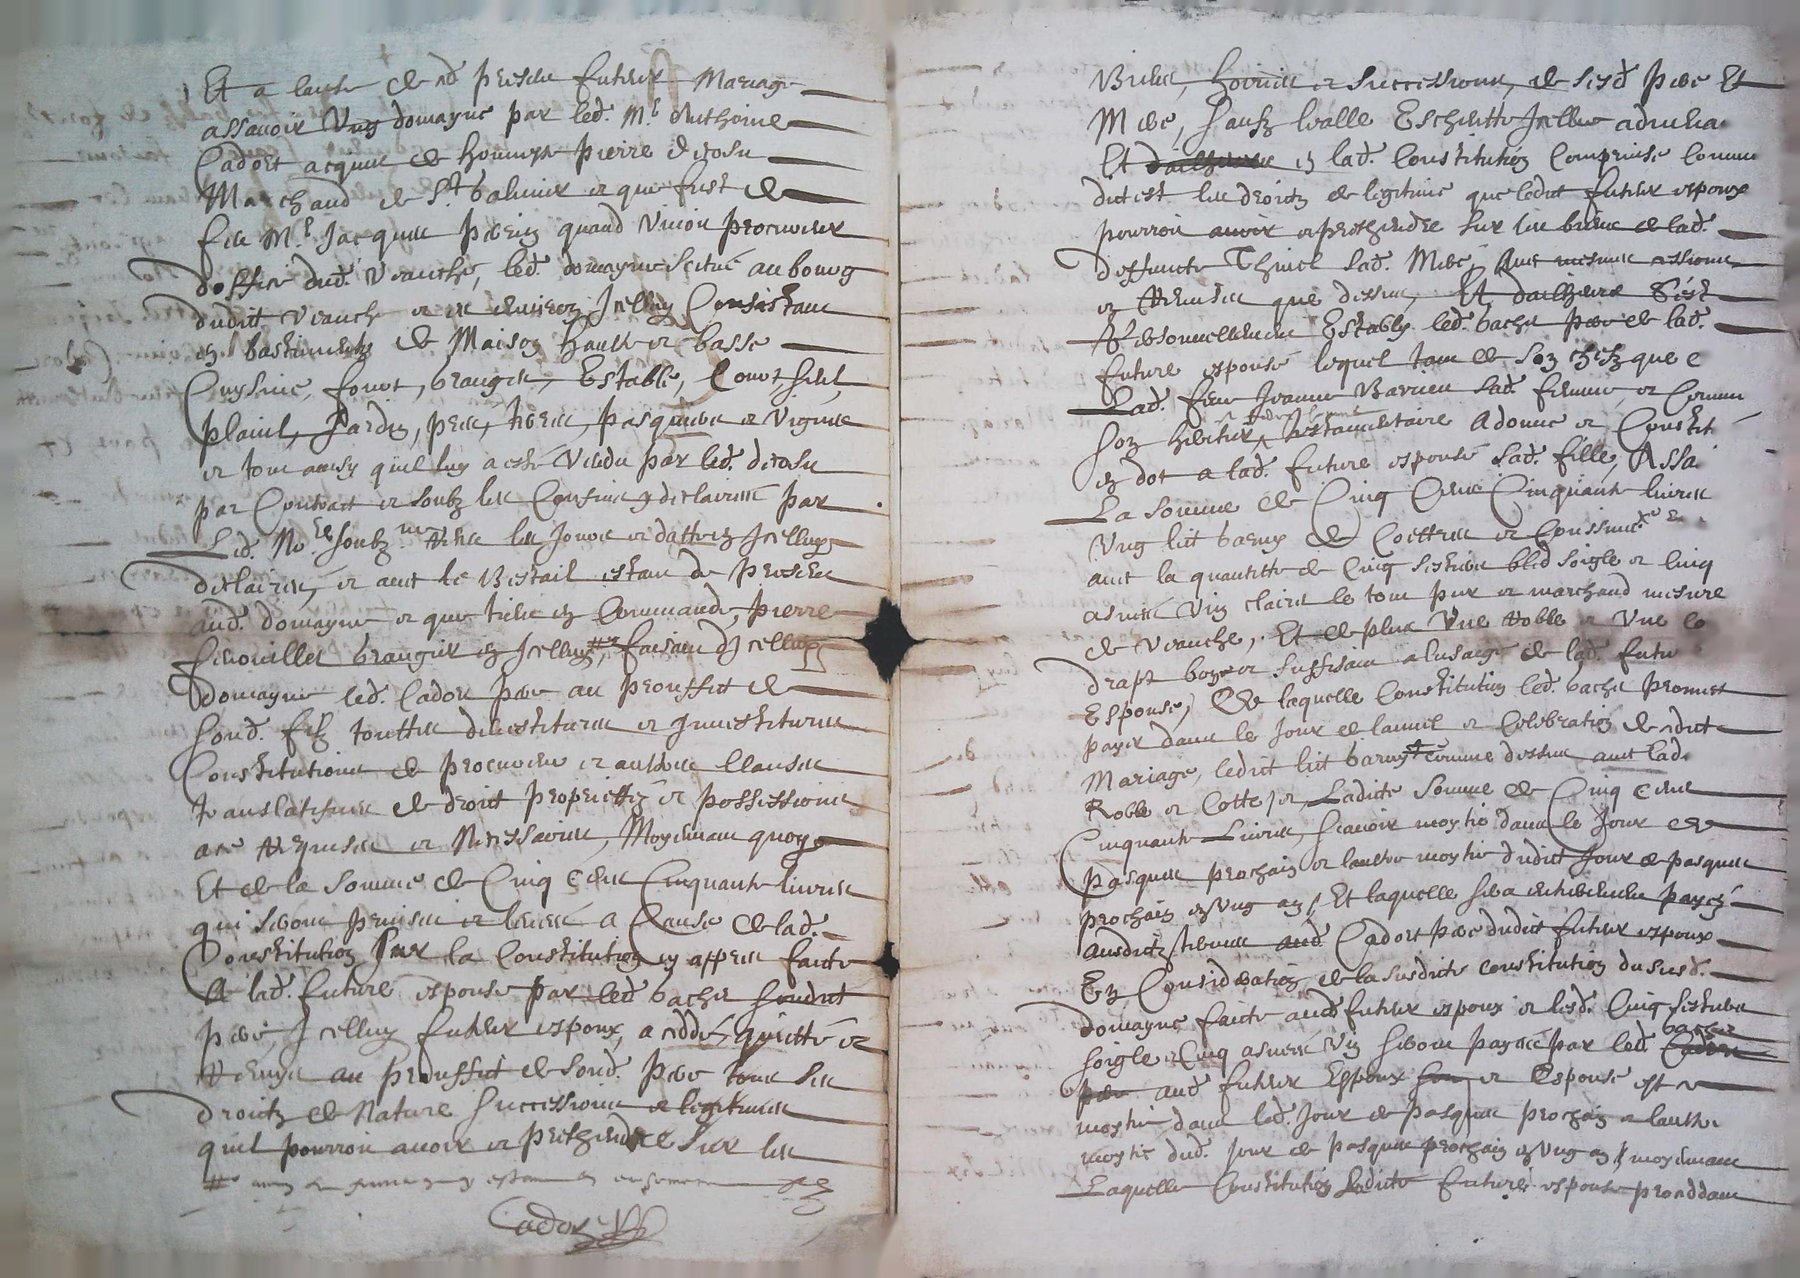 Et a cause de ce present futeur Mariage
assavoir Ung domayne par led. Mr Anthoine
Cadort acquis de honneste Pierre
Marchand de St galmier et que fust de
feu Mr Jacques quand vivoit procureur
doffice dud. Veauche, led. domayne scitué au bourg
dudit Veauche et es environs Icelluy Consistant
en bastiments de Maison haulte et basse
Cuysine, fourt, grangis, Estable, Court,
plaint, Jardin, prés, terres, pasquiers et Vignes
et tout ainsy quil luy a esté Vendu par led.
par Contract et soubz les Confins y declairees par
Led. No.re soubz.né les Jours et datte en Icelluy
declairees, et avec le Bestail estant de present
aud. domayne et que tient en Commande, Pierre
granger en Icelluy, faisant d'Icelluy
domayne led. Cadort pere au prouffit de
sond. filz touttes devestitures et Investitures
Constitutions de procureur et aultres Clauses
translatifves de droit proprietté et possessions
a ce requises et Necessaires, Moyennant quoy
Et de la Somme de Cinq Cens Cinquante livres
qui seront prinses et levees a Cause de lad.
Constitution Sur la Constitution cy appres faicte
A lad. future espouse par led. bachet sondit
pere, Icelluy futeur espoux, a cedde quitté et
remys au prouffit de sond. pere tous les
droitz de Nature Successions et legitimes
quil pourroit avoir et prethendre sur les
Cador
Biens, hoirie et successions, de sesd. pere Et
Mere, sauf loialle Eschutte Icelle advenant
Et en lad. Constitution Comprinse Comme
dict est les droitz de legitime que ledict futeur espoux
pourroit avoir et prethendre sur les biens de lad.
deffuncte sad. Mere,
et que dessus, Et dailheurs S'est
Personnellement Estably led. bachet pere de lad.
future espouse lequel tant de son chefz que de
Lad. feue Jeanne sad. femme, et Comme
son heritier testamentaire A donné et Constitué
en dot a lad. future espouse sad. fille, Assa
La somme de Cinq Cens Cinquante livres
Ung lit garny de Coettre et Coussin
avec la quantitté de Cinq sestiers bled soigle et cinq
asnees Vin clairet le tout pur et marchand mesure
de Veauche, Et de plus Une Robbe et Une co
drapt bon et suffisant a lusaige de lad. futu
Espouse, De laquelle Constitution led. bachet promet
payer dans le Jour de lannel et Celebration de cedict
Mariage, ledict lit garny comme dessus avec lad.
Robbe et Cotte, et Ladicte Somme de Cinq Cens
Cinquante Livres, scavoir moytié dans le Jour de
Pasques prochain et laultre moytié dudict Jour de pasques
prochain en Ung an, Et laquelle sera entierement payé
ausdictz termes aud. Cadort pere dudict futeur espoux
En Consideration de la susdicte constitution du susd.
domayne faicte audt futeur espoux et lesd. Cinq sestiers
soigle et Cinq asnees Vin seront payées par led. bachet
aud futeur Espoux et Espouse
moytié dans led. Jour de pasques prochain et laultre
moytié dud. Jour de pasques prochain en Ung an, moyennant
Laquelle Constitution Ladicte future espouse proceddant